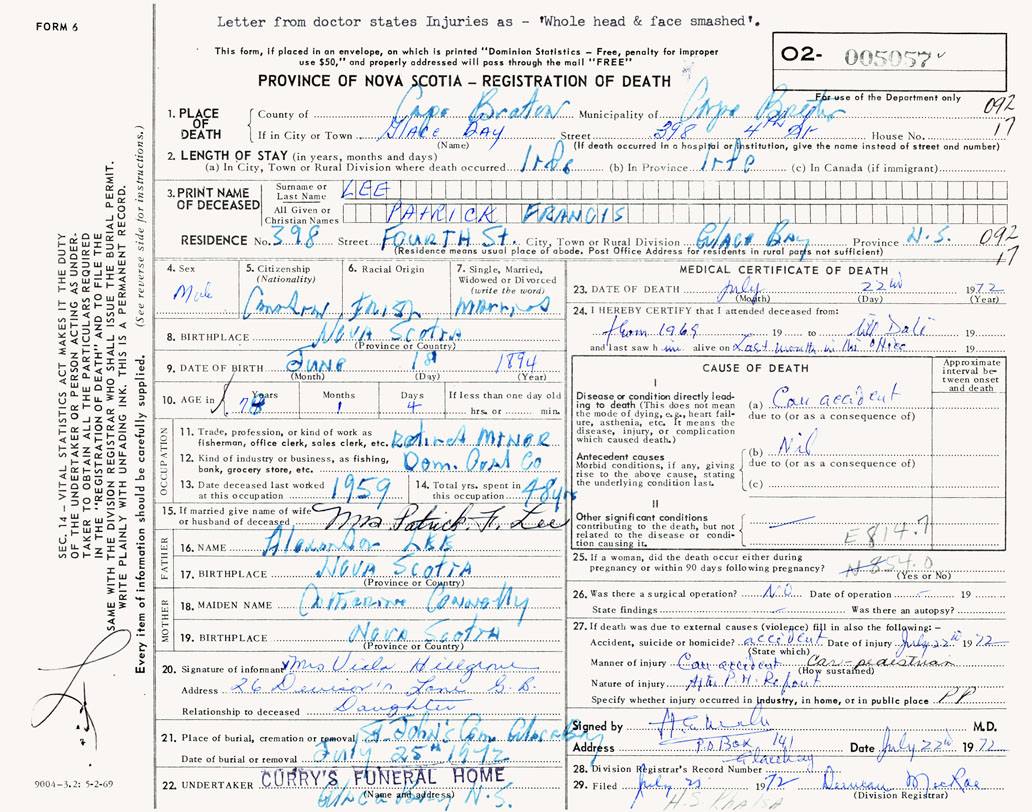 FORM 6
Letter from doctor states Injuries as - 'Whole head & face smashed'.
This form, if placed in an envelope, on which is printed "Dominion Statistics — Free, penalty for improper
use $50," and properly addressed will pass through the mail "FREE"
PROVINCE OF NOVA SCOTIA – REGISTRATION OF DEATH
O2- 005057
For use of the Department only
092
17
1. PLACE OF DEATH
County of Cape Breton Municipality of Cape Breton
If in City or Town Glace Bay Street 398 4th St House No.
(Name) (If death occurred in a hospital or institution, give the name instead of street and number)
2. LENGTH OF STAY (in years, months and days)
(a) In City, Town or Rural Division where death occurred Life (b) In Province Life (c) In Canada (if immigrant)
3. PRINT NAME OF DECEASED
Surname or Last Name LEE
All Given or Christian Names PATRICK FRANCIS
RESIDENCE No. 398 Street FOURTH St. City, Town or Rural Division Glace Bay Province N.S. 092
(Residence means usual place of abode. Post Office Address for residents in rural parts not sufficient) 17
4. Sex
Male
5. Citizenship
(Nationality)
Canadian
6. Racial Origin
IRISH
7. Single, Married,
Widowed or Divorced
(write the word)
Married
8. BIRTHPLACE Nova Scotia
(Province or Country)
9. DATE OF BIRTH June 18 1894
(Month) (Day) (Year)
10. AGE in Years 78 Months 1 Days 4 If less than one day old
hrs. or min.
OCCUPATION
11. Trade, profession, or kind of work as
fisherman, office clerk, sales clerk, etc. Retired MINER
12. Kind of industry or business, as fishing,
bank, grocery store, etc. Dom. Coal Co
13. Date deceased last worked
at this occupation 1959
14. Total yrs. spent in
this occupation 48 yrs
15. If married give name of wife
or husband of deceased Mrs Patrick F. Lee
FATHER
16. NAME Alexander LEE
17. BIRTHPLACE Nova Scotia
(Province or Country)
MOTHER
18. MAIDEN NAME Catherine Connolly
19. BIRTHPLACE Nova Scotia
(Province or Country)
20. Signature of informant Mrs Viola Hillgrove
Address 26 Lane G.B.
Relationship to deceased Daughter
21. Place of burial, cremation or removal St John's Cem. Glace Bay
Date of burial or removal July 25th 1972
22. UNDERTAKER CURRY'S FUNERAL HOME
(Name and address)
Glace Bay N.S.
MEDICAL CERTIFICATE OF DEATH
23. DATE OF DEATH July 22nd 1972
(Month) (Day) (Year)
24. I HEREBY CERTIFY that I attended deceased from:
from 1969 19 to till Date 19
and last saw him alive on Last month in the office 19
CAUSE OF DEATH
Approximate
interval between
onset
and death
I
Disease or condition directly leading
to death (This does not mean
the mode of dying, e.g., heart failure,
asthenia, etc. It means the
disease, injury, or complication
which caused death.)
(a) Car accident
due to (or as a consequence of)
Antecedent causes
Morbid conditions, if any, giving
rise to the above cause, stating
the underlying condition last.
(b) Nil
due to (or as a consequence of)
(c)
II
Other significant conditions
contributing to the death, but not
related to the disease or condition
causing it.
E814.7
25. If a woman, did the death occur either during
pregnancy or within 90 days following pregnancy? N 854.0
(Yes or No)
26. Was there a surgical operation? NO Date of operation — 19
State findings — Was there an autopsy?
27. If death was due to external causes (violence) fill in also the following:–
Accident, suicide or homicide? accident Date of injury July 22nd 1972
(State which)
Manner of injury Car accident Car-pedestrian
(How sustained)
Nature of injury After P.M. Report
Specify whether injury occurred in industry, in home, or in public place PP
Signed by M.D.
Address P.O. Box 141 Date July 22nd 1972
Glace Bay
28. Division Registrar's Record Number
29. Filed July 25 1972 Duncan MacRae
(Division Registrar)
SEC. 14 – VITAL STATISTICS ACT MAKES IT THE DUTY
OF THE UNDERTAKER OR PERSON ACTING AS UNDERTAKER
TO OBTAIN ALL THE PARTICULARS REQUIRED
IN THE "REGISTRATION OF DEATH" AND TO FILE THE
SAME WITH THE DIVISION REGISTRAR WHO SHALL ISSUE THE BURIAL PERMIT.
WRITE PLAINLY WITH UNFADING INK. THIS IS A PERMANENT RECORD.
Every item of information should be carefully supplied. (See reverse side for instructions.)
9004–3.2: 5-2-69